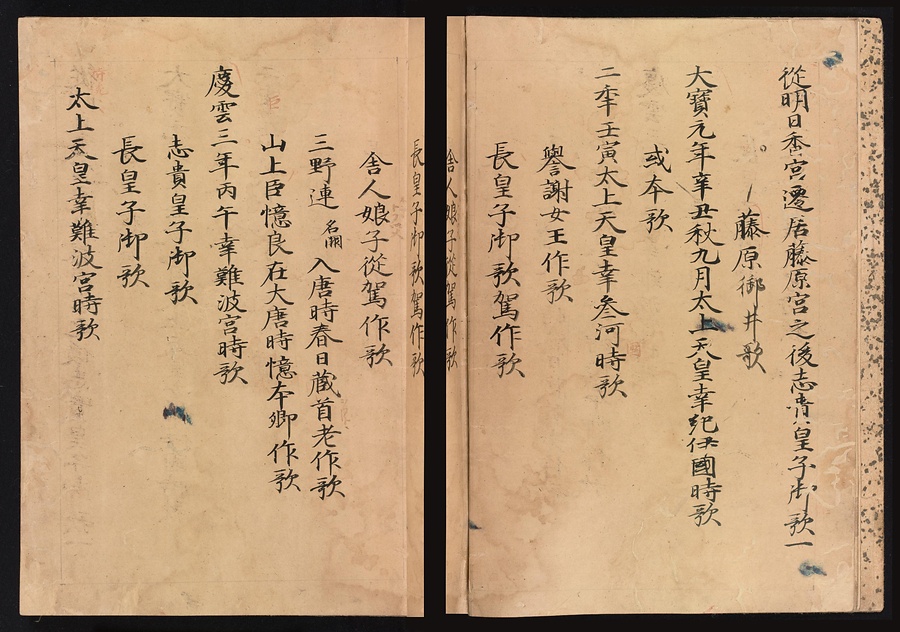 從明日香宮遷居藤原宮之後志貴皇子御歌一
藤原御井歌
大寶元年辛丑秋九月太上天皇幸紀伊國時歌
或本歌
二年壬寅太上天皇幸叄河時歌
譽謝女王作歌
長皇子御歌駕作歌
舍人娘子從駕作歌
長皇子御歌駕作歌
舍人娘子從駕作歌
三野連名闕入唐時春日蔵首老作歌
山上臣憶良在大唐時憶本郷作歌
慶雲三年丙午幸難波宮時歌
志貴皇子御歌
長皇子御歌
太上天皇幸難波宮時歌